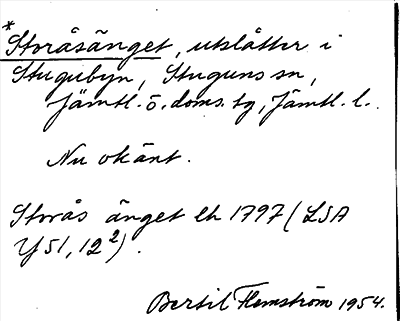 *Storåsänget, utslåtter i
Stugubyn, Stuguns sn,
Jämtl. ö. doms. tg, Jämtl. l.
Nu okänt.
Storås änget lh 1797 (LSA
Y 51, 12²).
Bertil Flemström 1954.